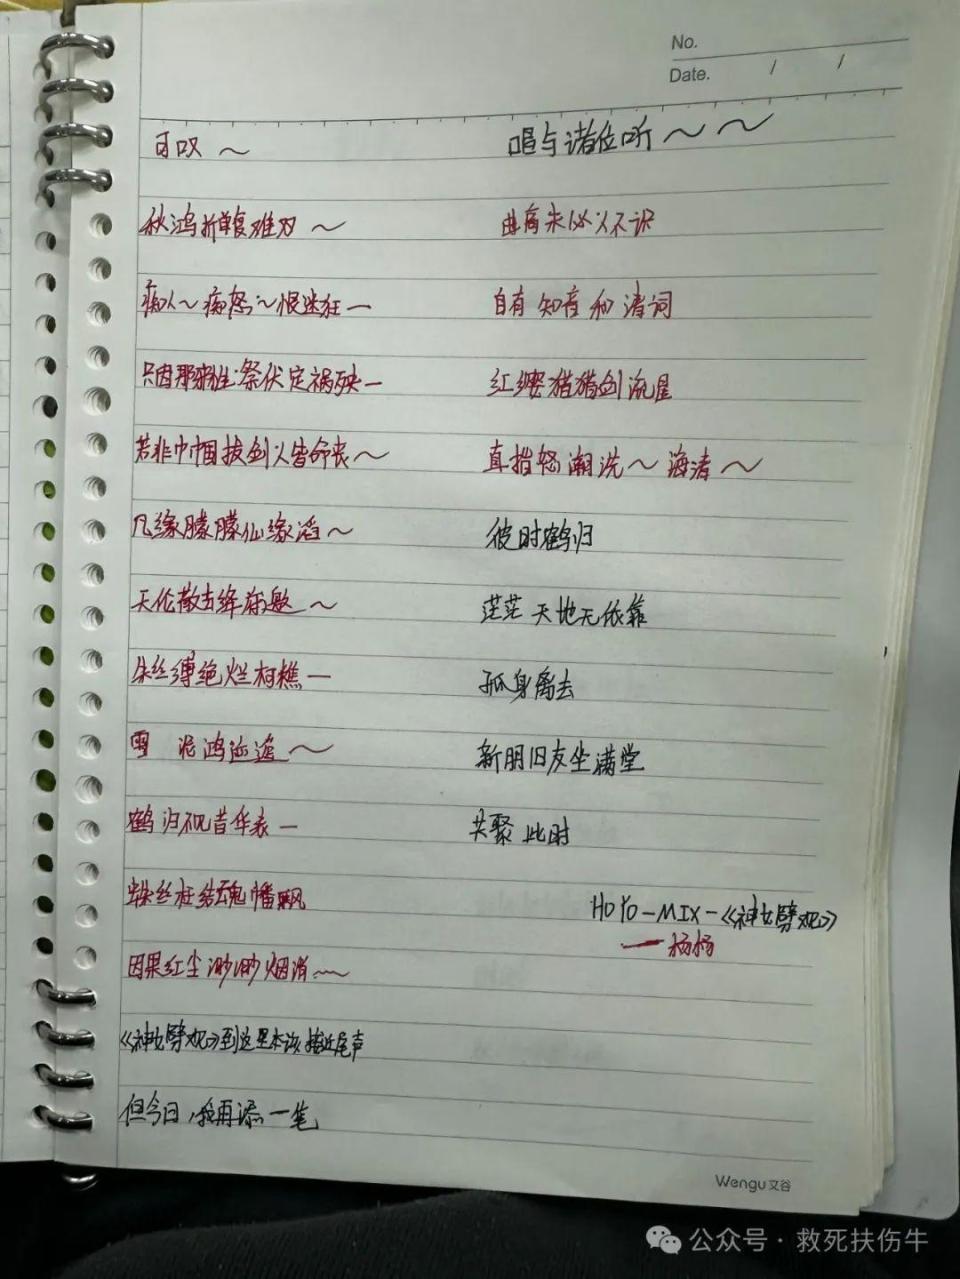 No.
Date. / /
可叹～
秋鸿折单复难双～
痴人～痴怒～恨迷狂一
只因那邪牲祭伏定祸殃一
若非巾帼拔剑人皆命丧～
凡缘朦朦仙缘滔～
天伦散去绛府邀～
朱丝缚绝烂柯樵一
雪 泥鸿迹遥～
鹤归不见昔华表一
蛛丝枉结魂幡飘
因果红尘渺渺烟消～
《神女劈观》到这里本该接近尾声
但今日，我再添一笔
唱与诸位听～～
曲高未必人不识
自有知音和清词
红缨猎猎剑流星
直指怒潮洗～海清～
彼时鹤归
茫茫天地无依靠
孤身离去
新朋旧友坐满堂
共聚此时
HOYO-MIX-《神女劈观》
—杨杨
Wengu文谷
公众号·救死扶伤牛